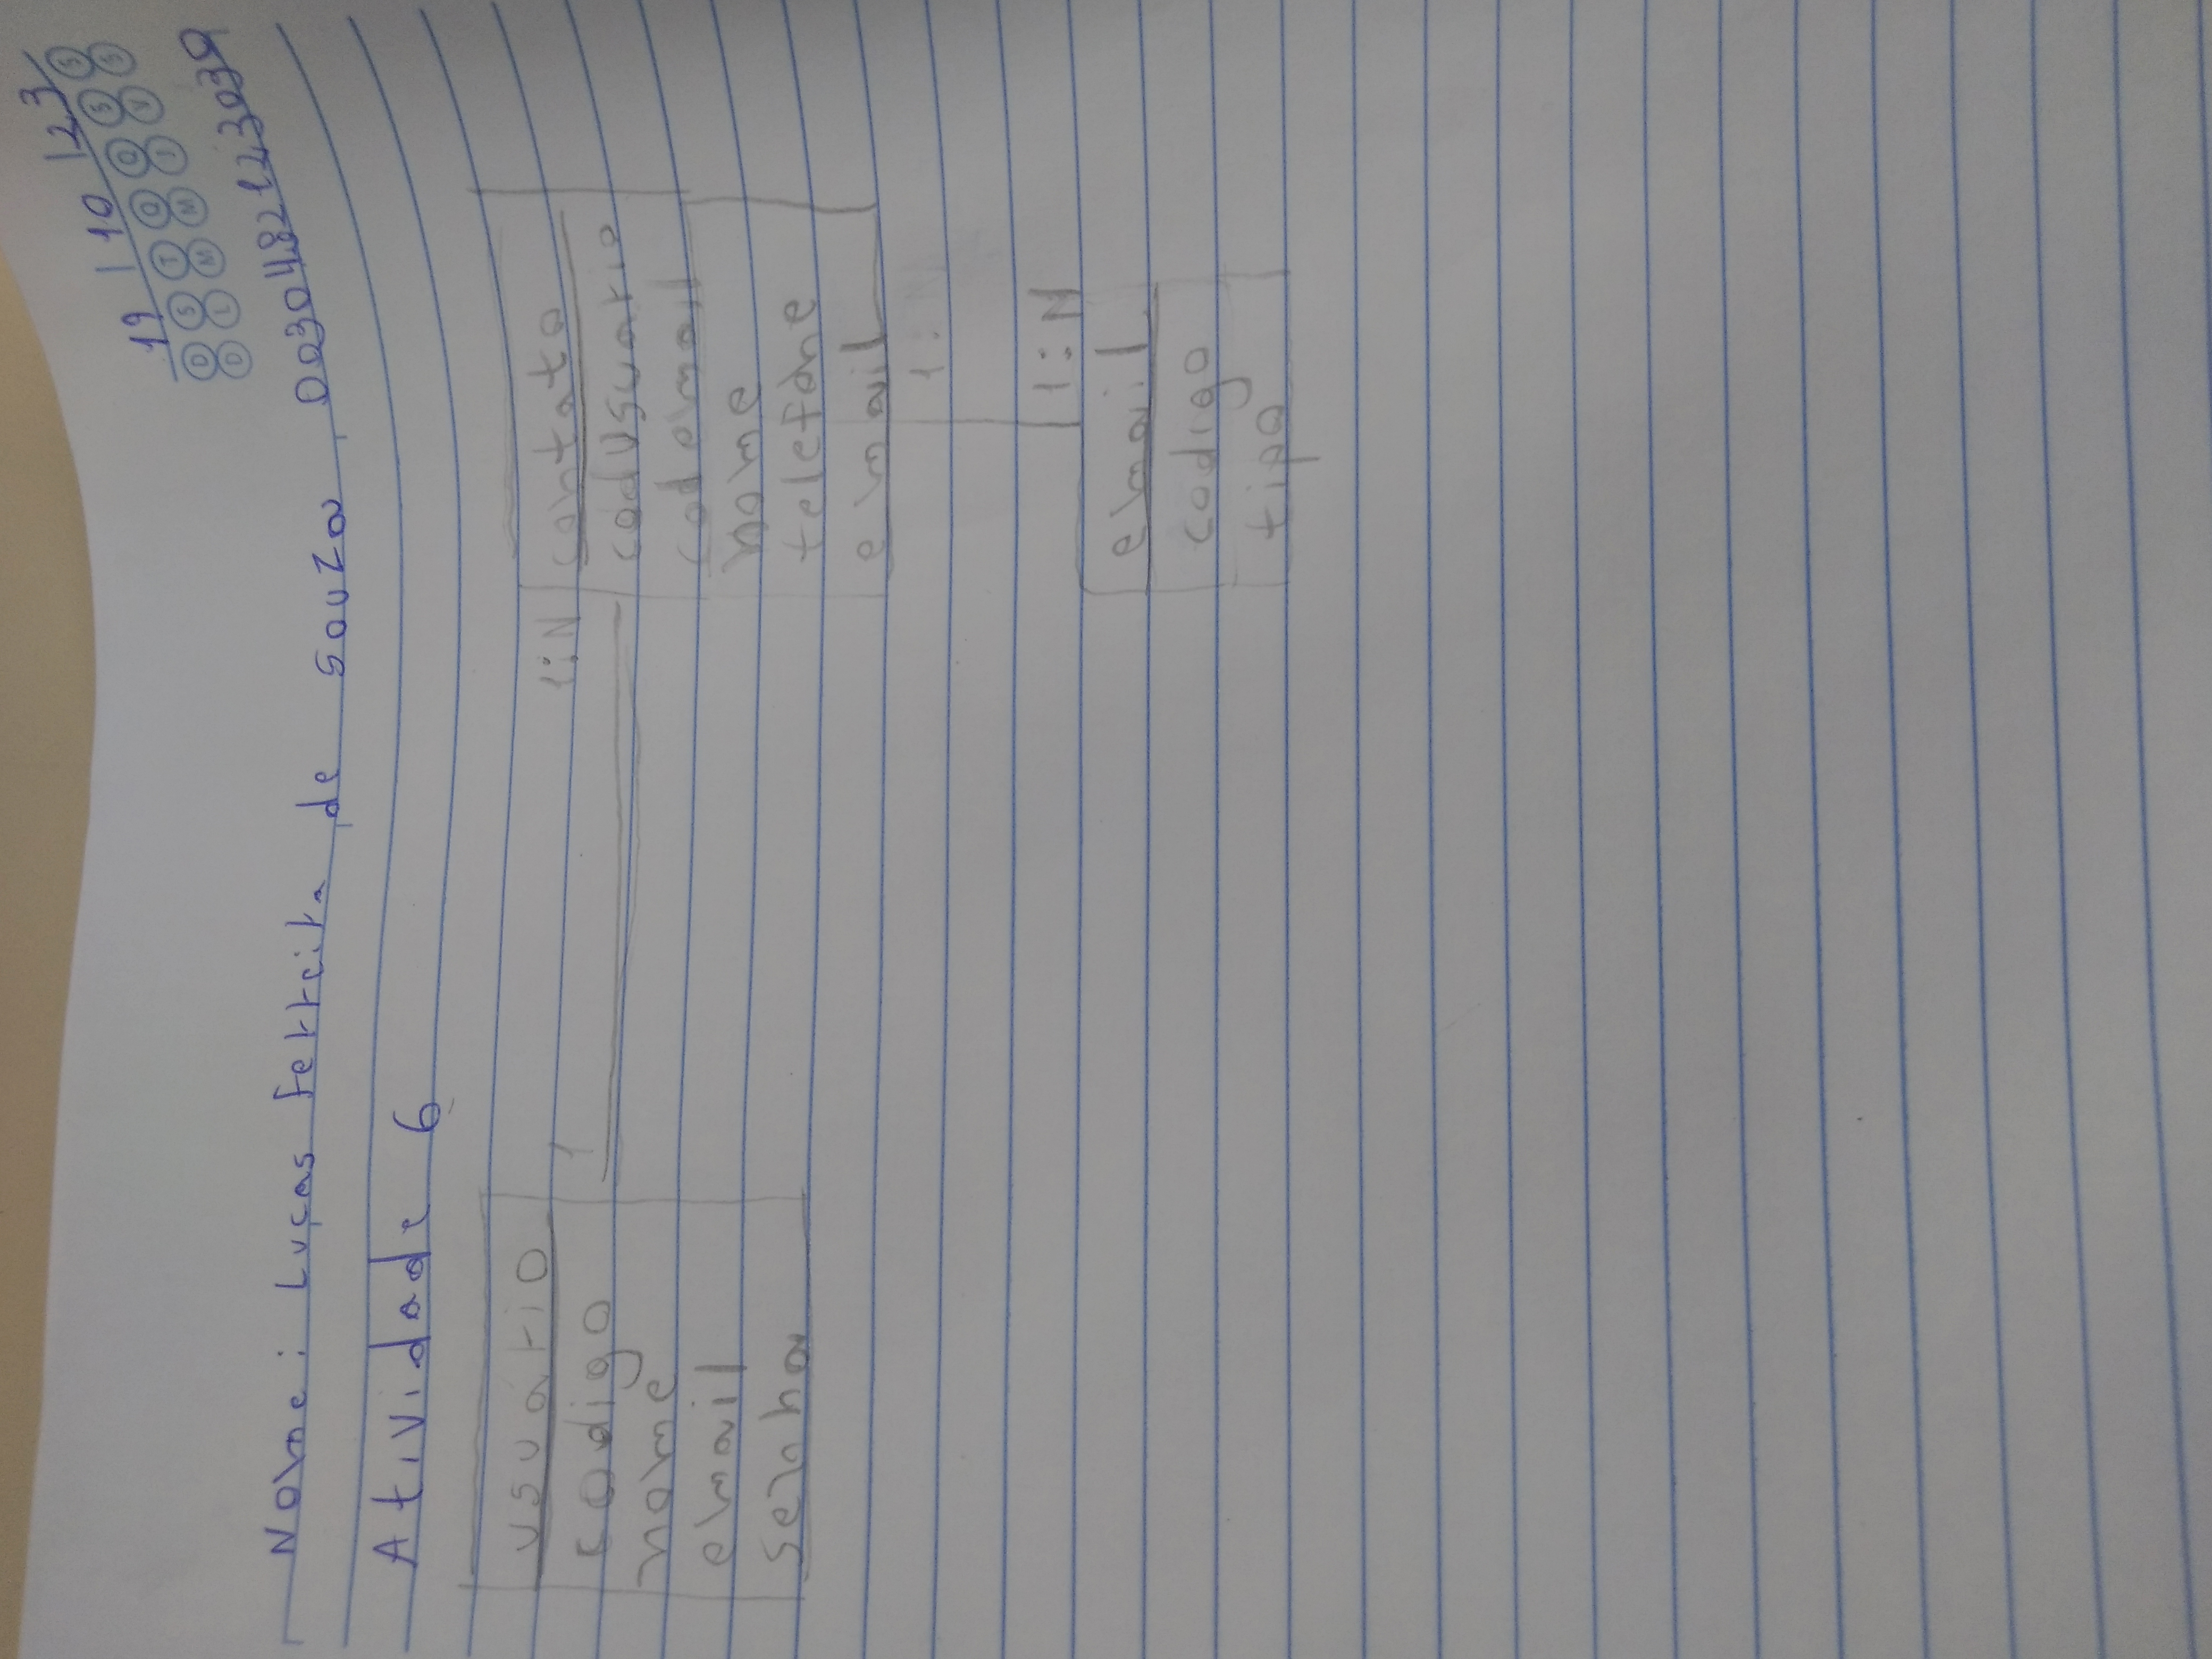 19 / 10 / 23
D S T Q Q S S
D L M M J V S
Nome: Lucas Ferreira de Souza, 0030482123039
Atividade 6
usuario
codigo
nome
email
senha
1
1:N
contato
codUsuario
codemail
nome
telefone
email
1:
1:N
email
codigo
tipo